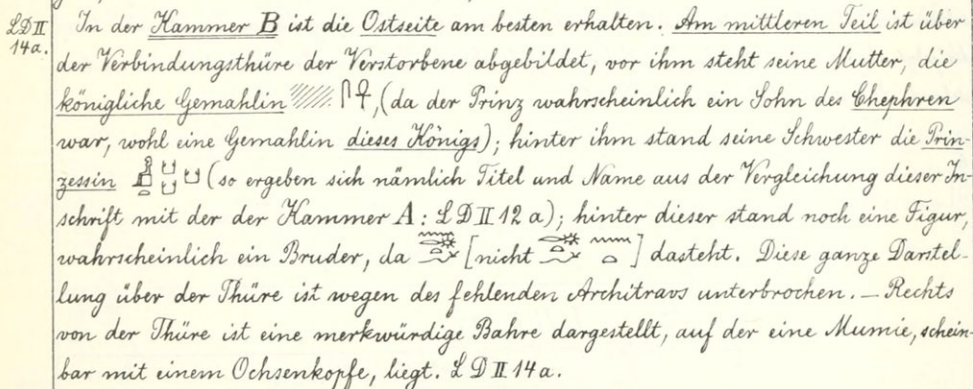 LD II
14a.
In der Kammer B ist die Ostseite am besten erhalten. Am mittleren Teil ist über
der Verbindungsthüre der Verstorbene abgebildet, vor ihm steht seine Mutter, die
königliche Gemahlin 𓋴𓋹, (da der Prinz wahrscheinlich ein Sohn des Chephren
war, wohl eine Gemahlin dieses Königs); hinter ihm stand seine Schwester die Prin-
zessin (so ergeben sich nämlich Titel und Name aus der Vergleichung dieser In-
schrift mit der der Kammer A: LD II 12 a); hinter dieser stand noch eine Figur,
wahrscheinlich ein Bruder, da [nicht ] dasteht. Diese ganze Darstel-
lung über der Thüre ist wegen des fehlenden Architravs unterbrochen. – Rechts
von der Thüre ist eine merkwürdige Bahre dargestellt, auf der eine Mumie, schein-
bar mit einem Ochsenkopfe, liegt. LD II 14a.